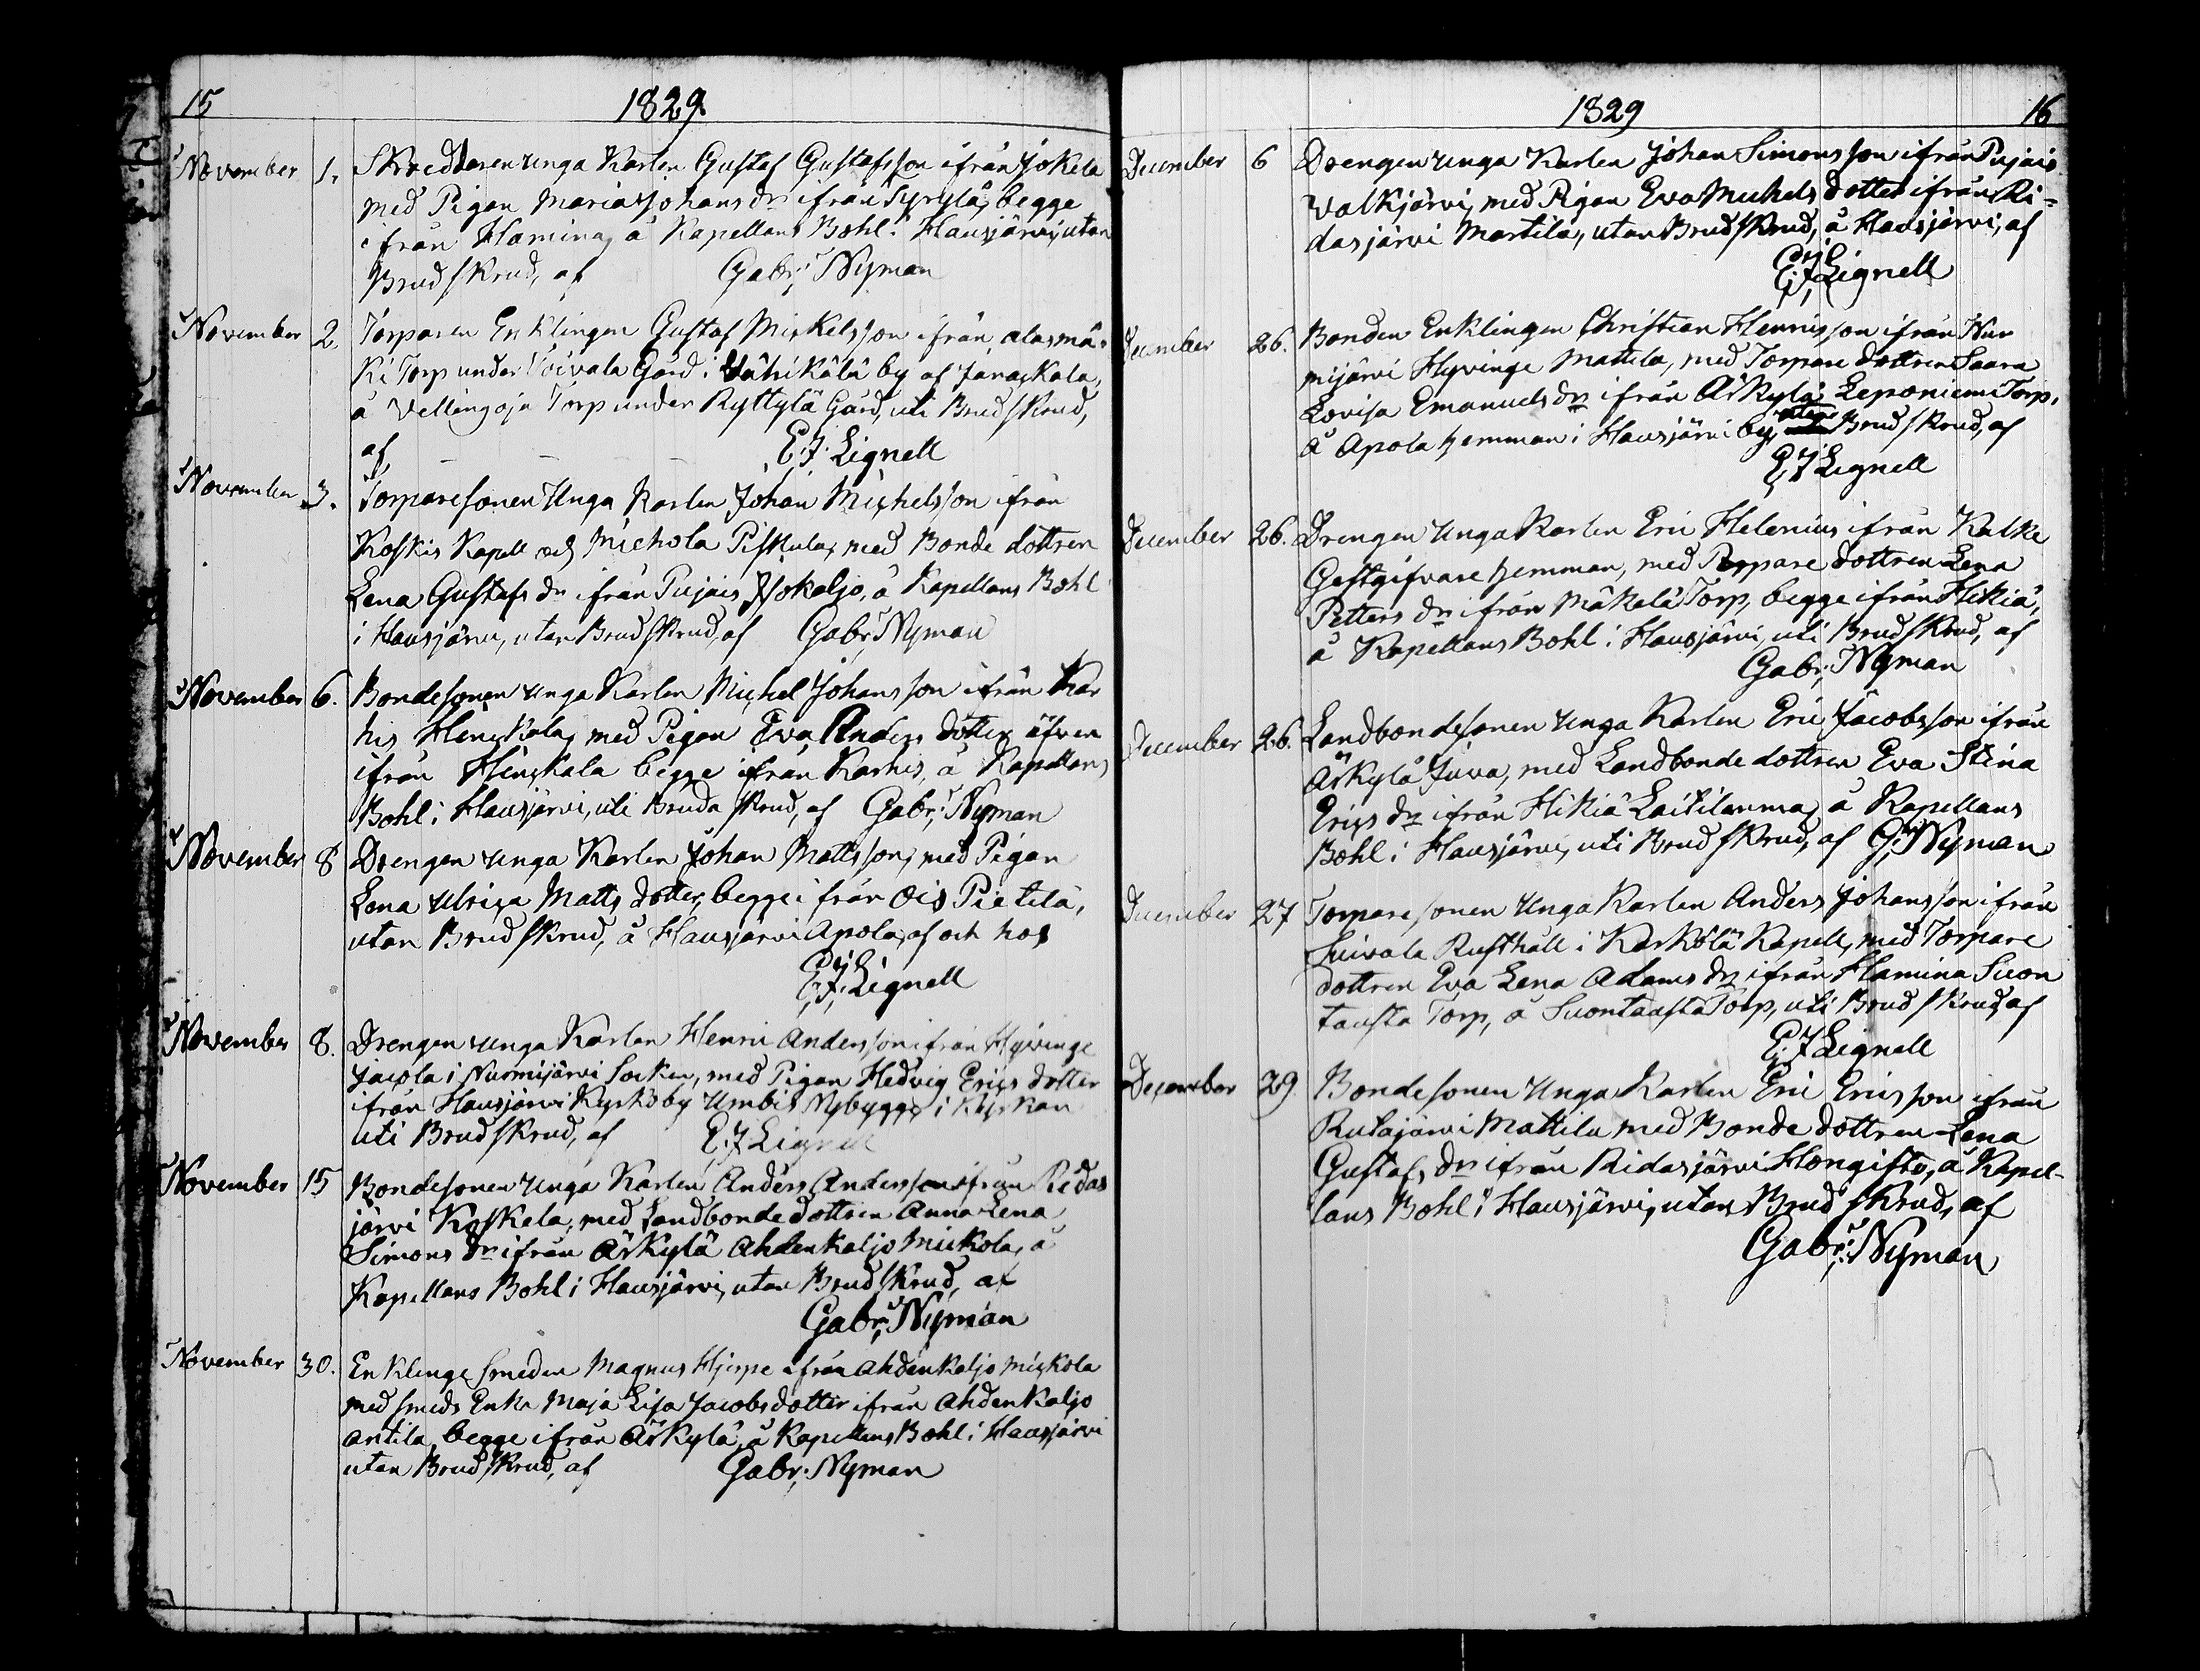 15 1829.
November 1. Skreddaren Unga Karlen Gustaf Gustafsson ifrån Jokela
med Pigan Maria Johansdr ifrån Syrylä, begge
ifrån Hamina, å Kapellans Bohl i Hausjärvi, utan
Brudskrud, af Gabr: Nyman
November 2. Torparen Enklingen Gustaf Mickelsson ifrån Alasmä-
ki Torp under Voivala Gård i Vähikälä by af Janackala,
å Vellingoja Torp under Ryttylä Gård, uti Brudskrud,
af E: J: Lignell
November 3. Torparesonen Unga Karlen Johan Michelsson ifrån
Koskis Kapell och Michola Piskula, med Bonde dottren
Lena Gustafs dr ifrån Pujais Isokaljo, å Kapellans Bohl
i Hausjärvi, utan Brudskrud, af Gabr: Nyman
November 6. Bondesonen Unga Karlen Michel Johansson ifrån Kar
his Hinckala, med Pigan Eva Anders dotter äfven
ifrån Hinckala begge ifrån Karhis, å Kapellans
Bohl i Hausjärvi, uti Bruda skrud, af Gabr: Nyman
November 8 Drengen Unga Karlen Johan Mattsson, med Pigan
Lena Ulrica Matts dotter, begge ifrån Ois Pietilä,
utan Brudskrud, å Hausjärvi Apola, af och hos
E: J: Lignell
November 8. Drengen Unga Karlen Henric Andersson ifrån Hyvinge
Jacola i Nurmijärvi Socken, med Pigan Hedvig Erics dotter
ifrån Hausjärvi Kyrkoby Umbis Nybygge, i Kyrkan
uti Brudskrud, af E. J Lignell
November 15 Bondesonen Unga Karlen Anders Andersson ifrån Ridas
järvi Koskela, med Landbonde dottren Anna Lena
Simons dr ifrån Äskylä Ahdenkaljo Mickola, å
Kapellans Bohl i Hausjärvi, utan Brudskrud, af
Gabr: Nyman
November 30. Enklinge Smeden Magnus Hjerpe ifrån Ahdenkaljo Mickola
med Smeds Enka Maja Lisa Jacobsdotter ifrån Ahdenkaljo
Antila, begge ifrån Äskylä, å Kapellans Bohl i Hausjärvi
utan Brudskrud, af Gabr: Nyman
1829 16
December 6 Drengen Unga Karlen Johan Simonsson ifrån Pujais
Valkjärvi, med Pigan Eva Michels dotter ifrån Ri=
dasjärvi Martila, utan Brudskrud, å Hausjärvi, af
E: J: Lignell
December 26. Bonden Enklingen Christian Henricsson ifrån Nur
mijärvi Hyvinge Mattila, med Torpare dottren Saara
Lovisa Emanuelsdr ifrån Äskylä Leponiemi Torp,
å Apola hemman i Hausjärvi by, utan Brudskrud, af
E: J Lignell
December 26. Drengen Unga Karlen Eric Helenius ifrån Kalke
Gestgifvare hemman, med Torpare dottren Lena
Petters dr ifrån Mäkelä Torp, begge ifrån Hikiä,
å Kapellans Bohl i Hausjärvi, uti Brudskrud, af
Gabr: Nyman
December 26. Landbondesonen Unga Karlen Eric Jacobsson ifrån
Äskylä Juva, med Landbonde dottren Eva Stina
Erics dr ifrån Hikiä Laitilanma, å Kapellans
Bohl i Hausjärvi, uti Brudskrud, af G: Nyman
December 27 Torparesonen Unga Karlen Anders Johansson ifrån
Suivala Rusthåll i Kärkölä Kapell, med Torpare
dottren Eva Lena Adams dr ifrån Hamina Suon
tausta Torp, å Suontausta Torp, uti Brudskrud, af
E: J Lignell
December 29 Bondesonen Unga Karlen Eric Ericsson ifrån
Rutajärvi Mattila med Bonde dottren Lena
Gustafs dr ifrån Ridasjärvi Hongisto, å Kapel-
lans Bohl i Hausjärvi, utan Brudskrud, af
Gabr: Nyman